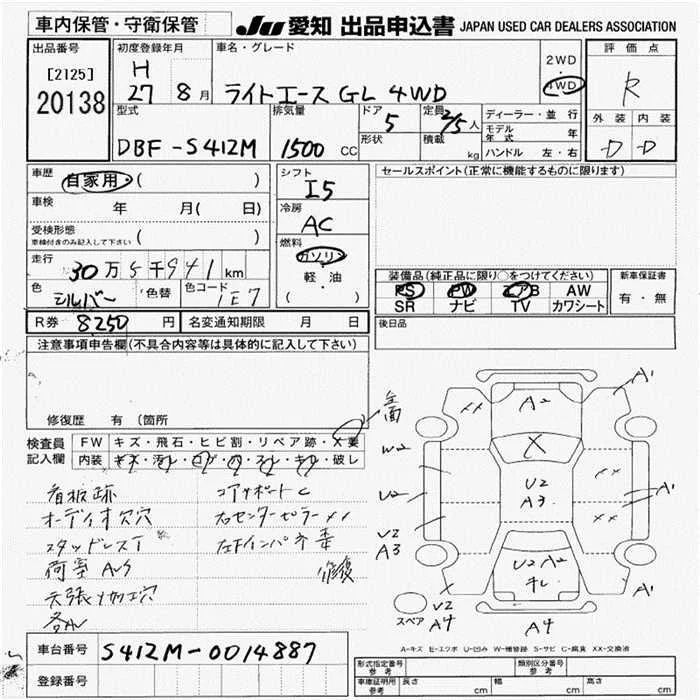 車内保管・守衛保管
JU 愛知 出品申込書 JAPAN USED CAR DEALERS ASSOCIATION
出品番号
[2125]
20138
初度登録年月
H
27 8 月
車名・グレード
ライトエース GL 4WD
2WD
4WD
評価点
R
外装 内装
D D
型式
DBF-S412M
排気量
1500 CC
ドア
5
形状
定員
2/5 人
積載
kg
ディーラー・並行
モデル年式 年
ハンドル 左・右
車歴
自家用・( )
車検
年 月( 日)
受検形態
車検付きのみ記入して下さい ( )
走行
30万5千941 km
色
シルバー
色替
色コード
1E7
R券 8250 円
名変通知期限 月 日
シフト
I5
冷房
AC
燃料
ガソリン
軽・油
( )
セールスポイント(正常に機能するものに限ります)
装備品(純正品に限り○をつけてください)
PS PW エアB AW
SR ナビ TV カワシート
新車保証書
有・無
後日品
注意事項申告欄(不具合内容等は具体的に記入して下さい)
修復歴 有 〔箇所
検査員
記入欄
FW キズ・飛石・ヒビ割・リペア跡・X要
内装 キズ・汚レ・コゲ・穴・スレ・キレ・破レ
全面
看板跡
オーディオ欠穴
スタッドレスT
荷室AUS
天張り加工穴
コアサポートC
右センターピラーメイ
修復
A1
A2
XX
W2
X
U2
U2
A3
XX
A1
XX
U2
A3
U2 A2
キレ
A1
X
X
U2
A4
A4
スペア
A-キズ E-エクボ U-凹み W-補修跡 S-サビ C-腐食 XX-交換済
車台番号
S412M-0014887
登録番号
形式指定番号
参考
類別区分番号
参考
車庫証明用
参考
長さ cm
幅 cm
高さ cm